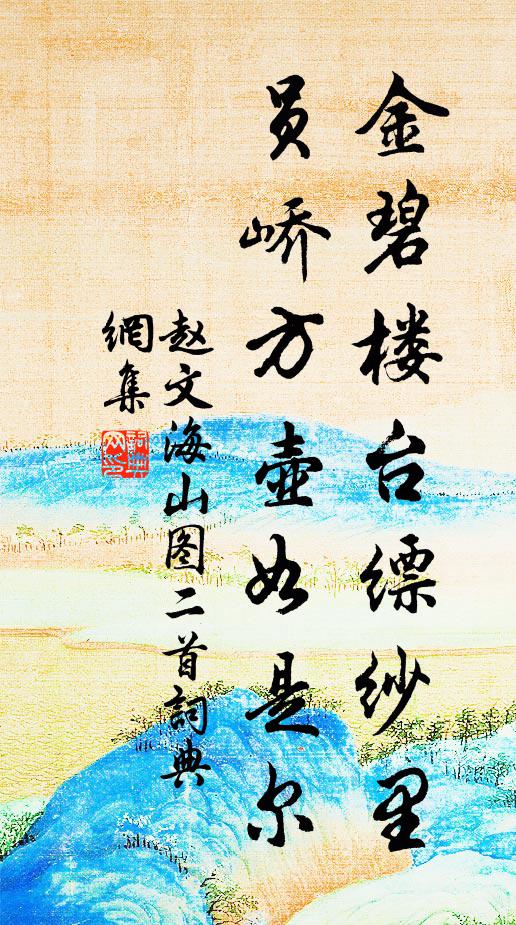 金碧楼台缥纱里
员峤方壶如是尔
赵文海山图二首詞典
網集